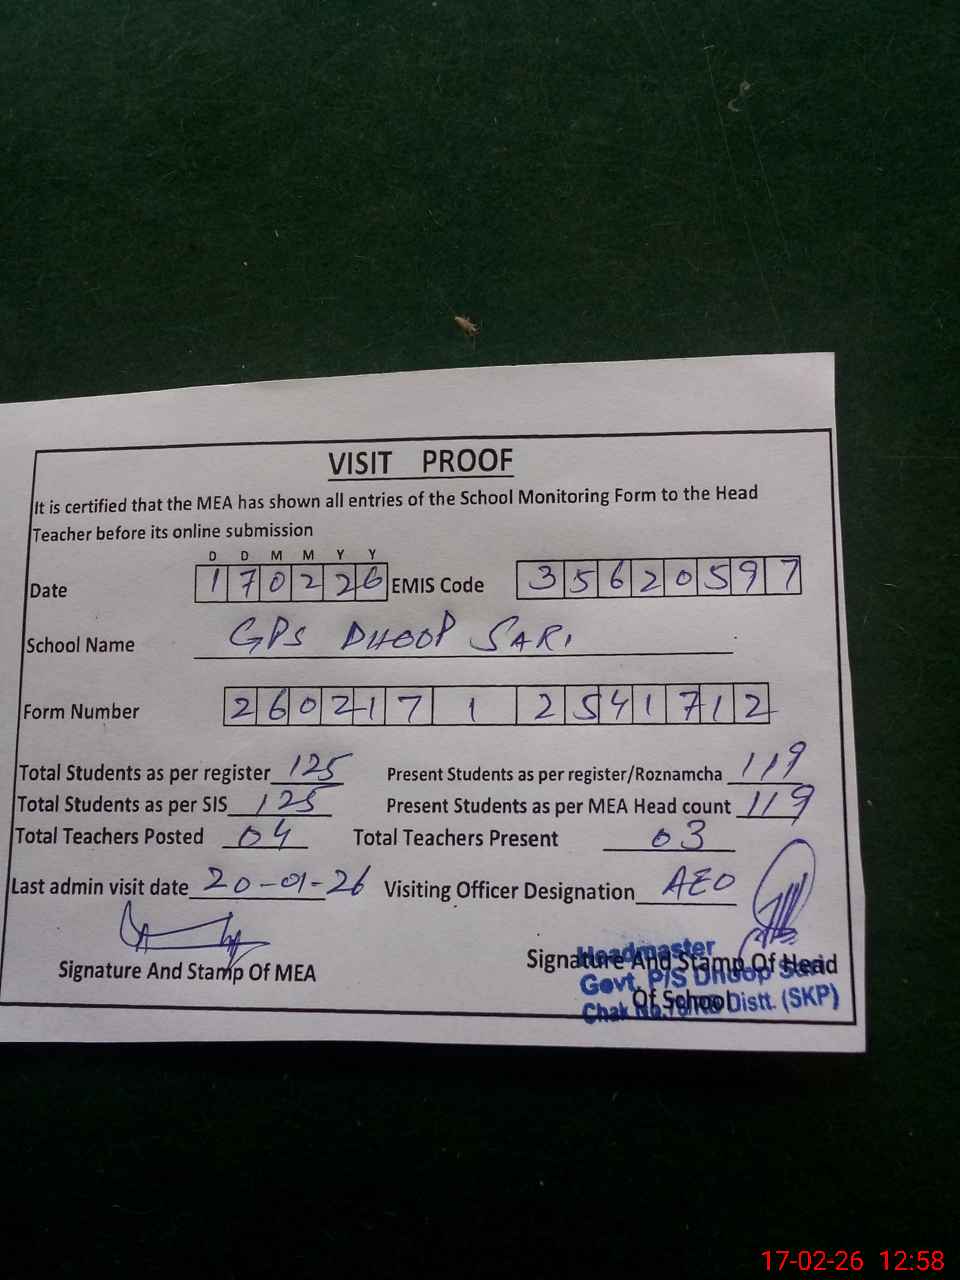 VISIT PROOF
It is certified that the MEA has shown all entries of the School Monitoring Form to the Head
Teacher before its online submission
D D M M Y Y
Date 170226 EMIS Code 35620597
School Name GPS DHOOP SARI
Form Number 260217 1 2541712
Total Students as per register 125 Present Students as per register/Roznamcha 119
Total Students as per SIS 125 Present Students as per MEA Head count 119
Total Teachers Posted 04 Total Teachers Present 03
Last admin visit date 20-01-26 Visiting Officer Designation AEO
Signature And Stamp Of MEA
Signature And Stamp Of Head
Of School
Headmaster
Govt. P/S Dhoop Sari
Chak No. Distt. (SKP)
17-02-26 12:58